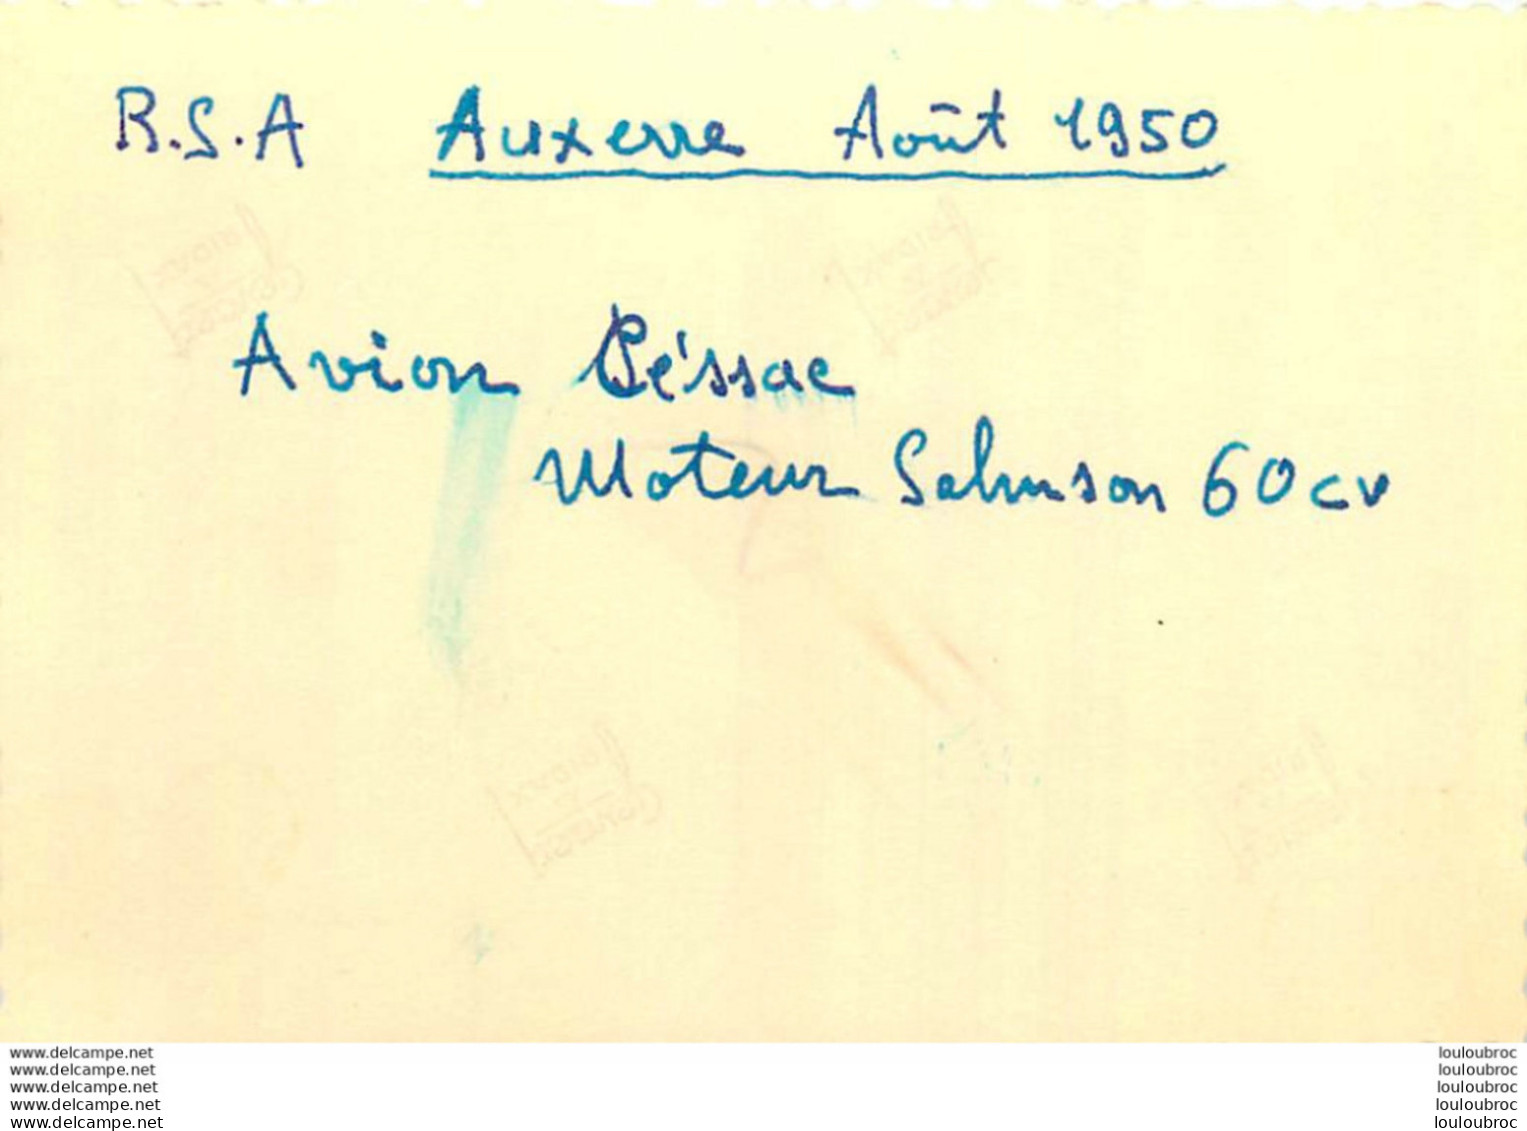 R.S.A Auxerre Août 1950
Avion Péssac
Moteur Salmson 60cv
www.delcampe.net
www.delcampe.net
www.delcampe.net
www.delcampe.net
www.delcampe.net
louloubroc
louloubroc
louloubroc
louloubroc
louloubroc